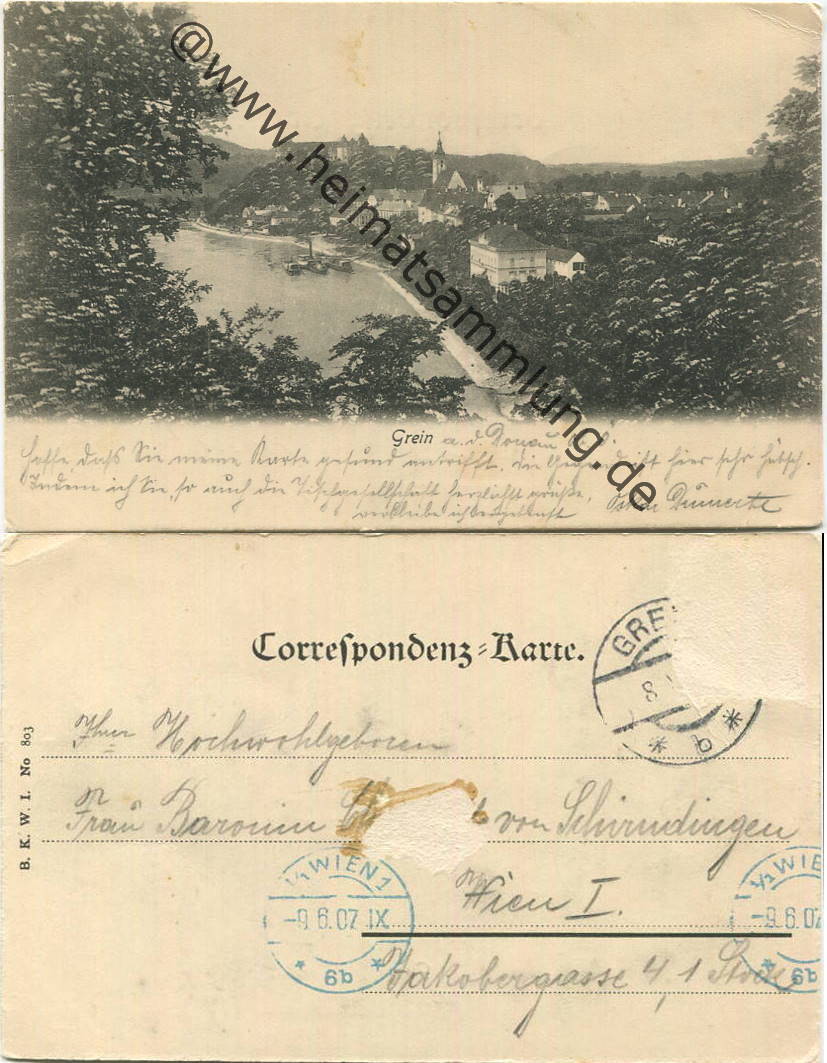 @www.heimatsammlung.de
Grein a. d. Donau
hoffe daß Sie meine Karte gesund antrifft. Die Gegend ist hier sehr hübsch.
Indem ich Sie, so auch die Tischgesellschaft herzlichst grüße,
verbleibe ich
Correspondenz-Karte.
GRE
8
b
B. K. W. I. No 803
Ihrer Hochwohlgeboren
Frau Baronin von Schirndingen
1/1 WIEN 1
-9.6.07 IX
* 6b *
Wien I.
1/2 WIE
-9.6.07
* 6b
Jakobergasse 4, 1 Stock